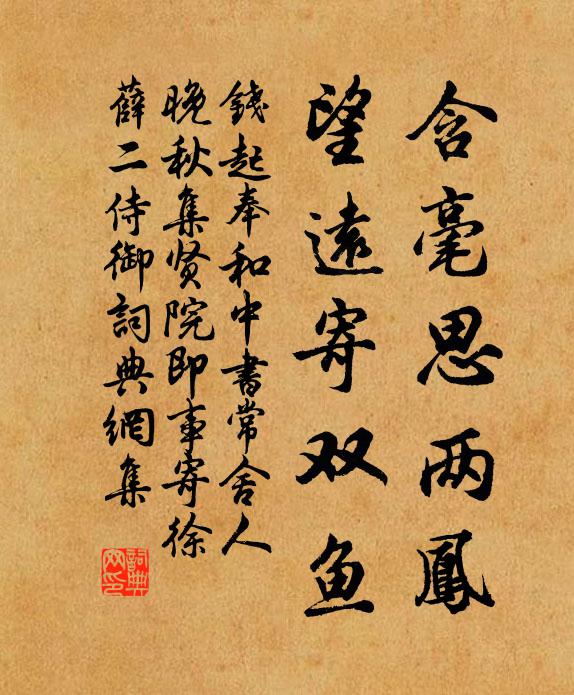 含毫思两鳳
望遠寄双鱼
錢起奉和中書常舍人
晚秋集贤院即事寄徐
薛二侍御詞典網集
詞典网印